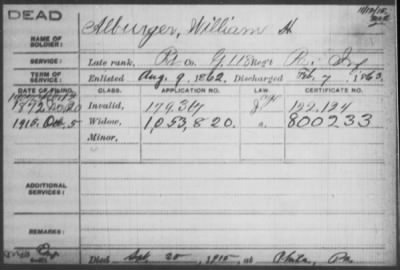 DEAD
NAME OF SOLDIER: Alburger, William H
SERVICE: Late rank, Co. G, 118 Reg't Pa. Inf
TERM OF SERVICE: Enlisted Aug. 9, 1862, Discharged Feb. 7, 1863.
DATE OF FILING. CLASS. APPLICATION NO. LAW. CERTIFICATE NO.
1872 20 Invalid, 179,367 122,124
1915. Oct. 5 Widow, 1,053,820. 800233
Minor,
ADDITIONAL SERVICES:
REMARKS:
Died Sept. 20, 1915, at Phila., Pa.